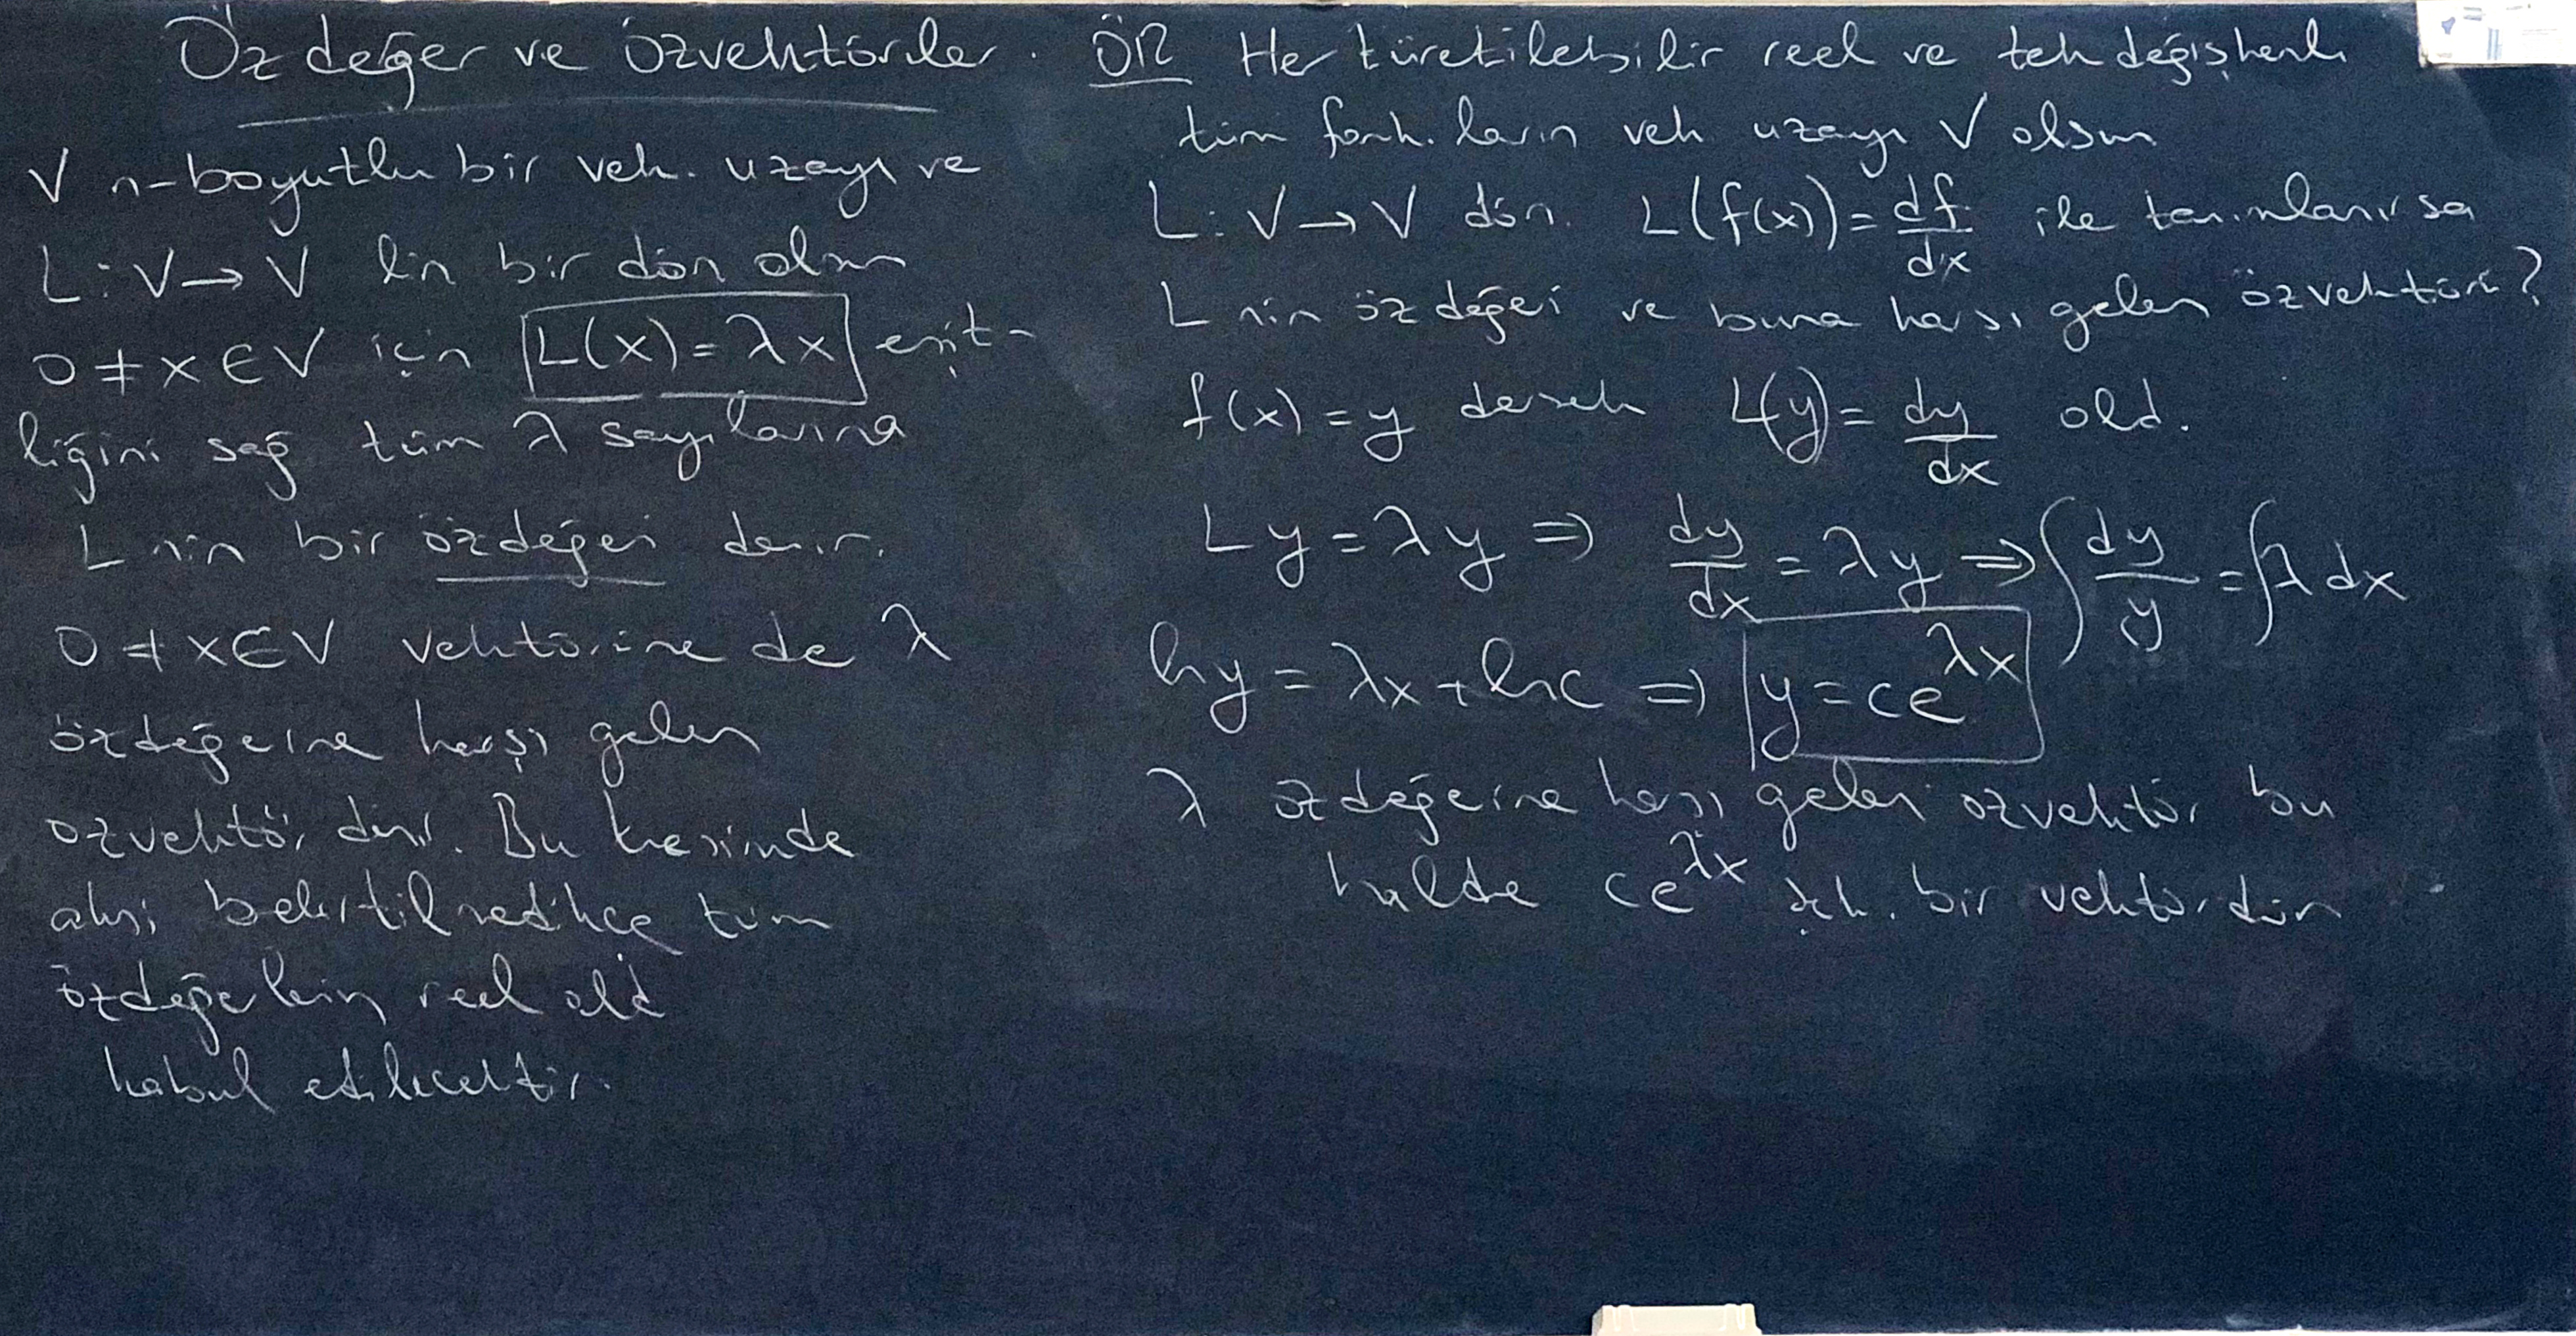 Özdeğer ve Özvektörler.
V n-boyutlu bir vek. uzayı ve
L: V → V lin bir dön olsun
0 ≠ x ∈ V için L(x) = λx eşit-
liğini sağ tüm λ sayılarına
L nin bir özdeğeri denir.
0 ≠ x ∈ V vektörüne de λ
özdeğerine karşı gelen
özvektör denir. Bu kesimde
aksi belirtilmedikçe tüm
özdeğerlerin reel old
kabul edilecektir.
ÖR Her türetilebilir reel ve tek değişkenli
tüm fonk. ların vek uzayı V olsun
L: V → V dön. L(f(x)) = df/dx ile tanımlanırsa
L nin özdeğeri ve buna karşı gelen özvektörü?
f(x) = y dersek L(y) = dy/dx old.
Ly = λy ⇒ dy/dx = λy ⇒ ∫ dy/y = ∫ λ dx
ln y = λx + ln c ⇒ y = ce^{λx}
λ özdeğerine karşı gelen özvektör bu
halde ce^{λx} şek. bir vektördür